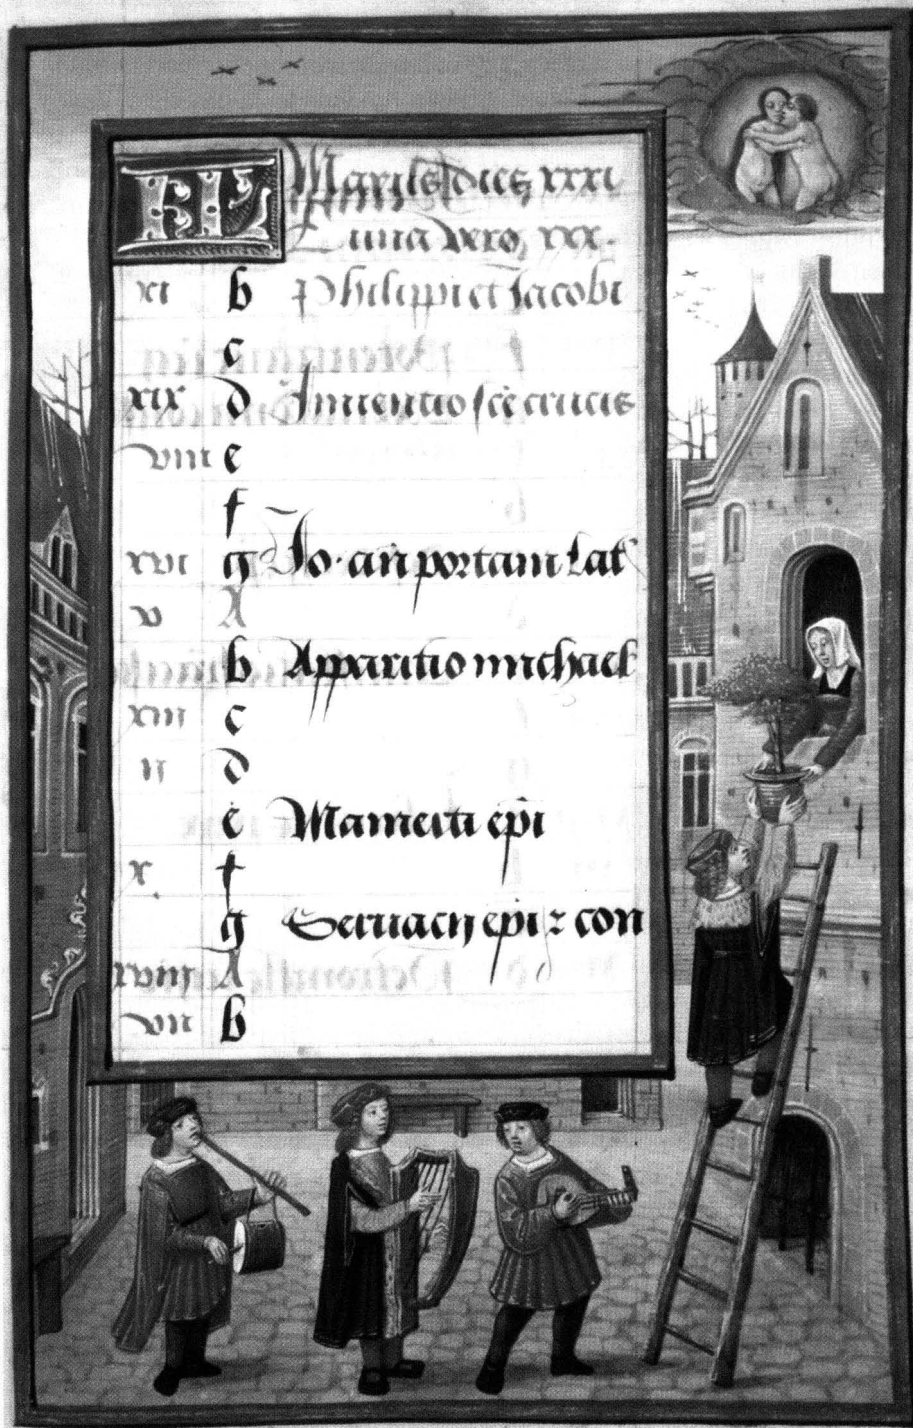 KL Maius dies xxxi
Luna vero xxx.
xi b Philippi et Jacobi
c
xix d Inventio scē crucis
viii e
f
xvi g Jo. an portam lat
v A
b Apparitio michael
xiii c
ii d
e Mamerti epi
x f
g Servacii epi z con
xviii A
vii b